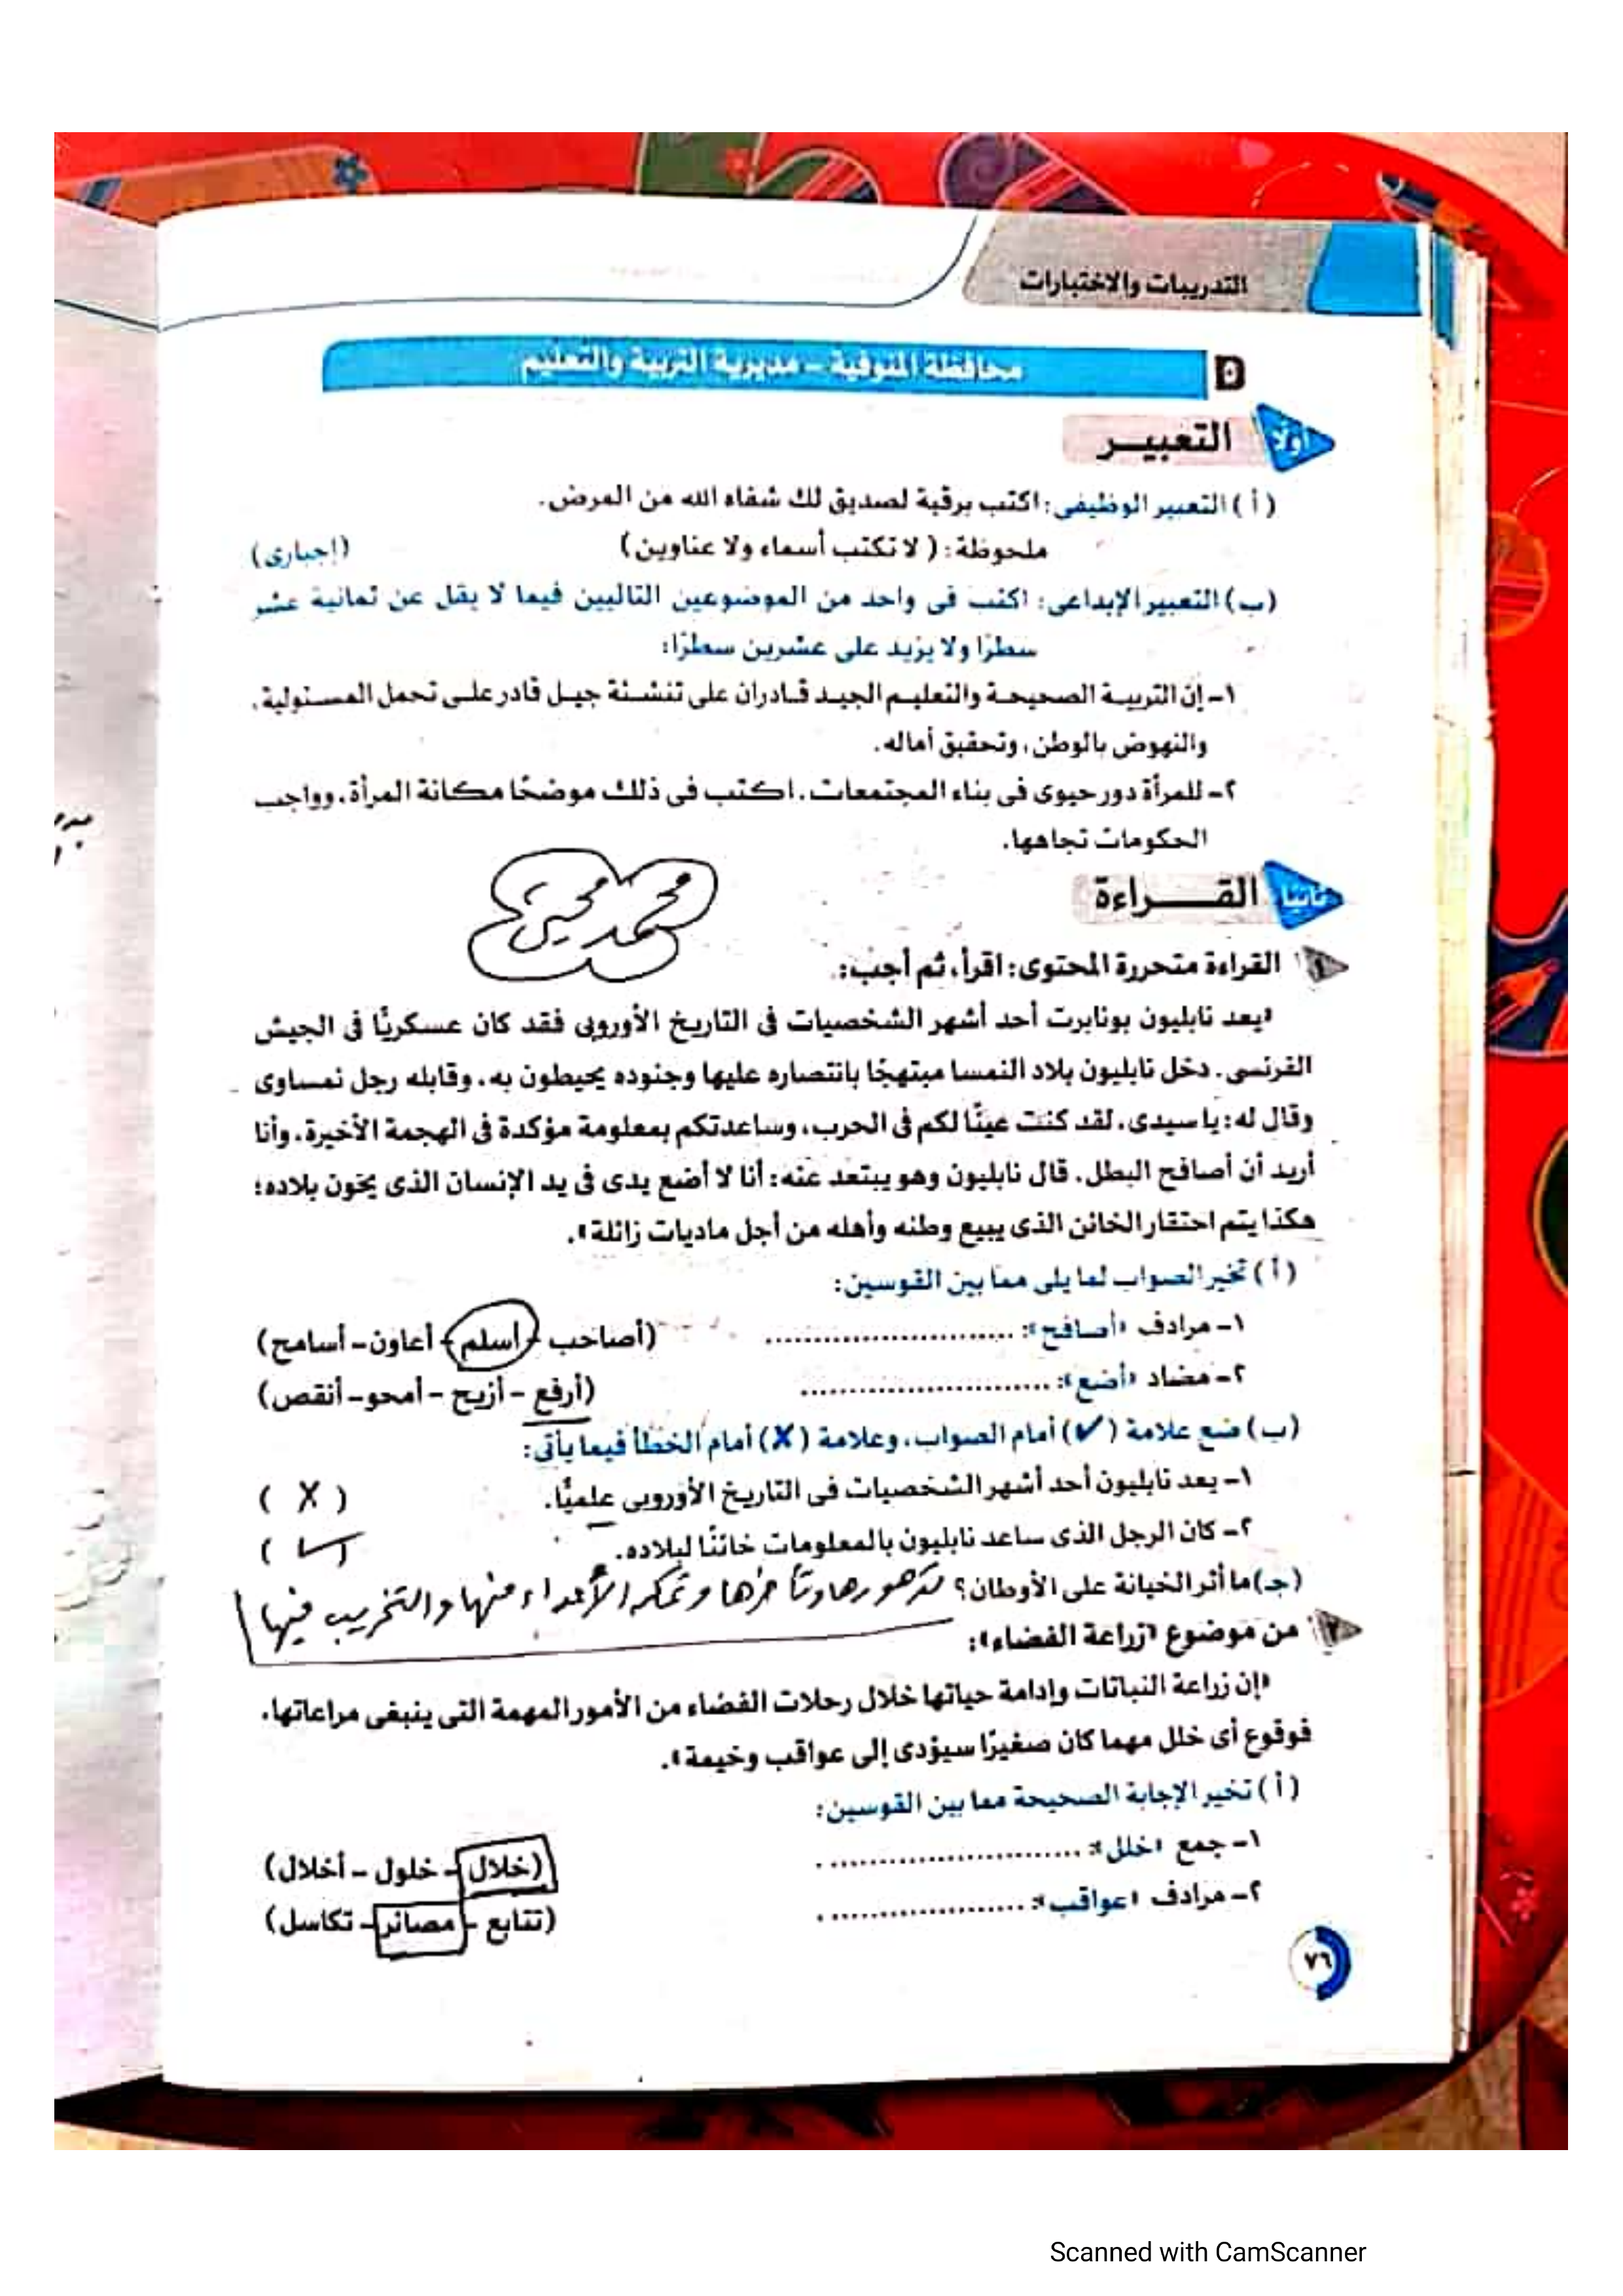 التدريبات والاختبارات
٥ محافظة المنوفية – مديرية التربية والتعليم
أولًا التعبير
(أ) التعبير الوظيفى: اكتب برقية لصديق لك شفاه الله من المرض.
ملحوظة: (لا تكتب أسماء ولا عناوين) (إجبارى)
(ب) التعبير الإبداعى: اكتب فى واحد من الموضوعين التاليين فيما لا يقل عن ثمانية عشر
سطرًا ولا يزيد على عشرين سطرًا:
١- إن التربية الصحيحة والتعليم الجيد قادران على تنشئة جيل قادر على تحمل المسئولية،
والنهوض بالوطن، وتحقيق آماله.
٢- للمرأة دور حيوى فى بناء المجتمعات. اكتب فى ذلك موضحًا مكانة المرأة، وواجب
الحكومات تجاهها.
ثانيًا القراءة
محمد
١ القراءة متحررة المحتوى: اقرأ، ثم أجب:
«يعد نابليون بونابرت أحد أشهر الشخصيات فى التاريخ الأوروبى فقد كان عسكريًّا فى الجيش
الفرنسى. دخل نابليون بلاد النمسا مبتهجًا بانتصاره عليها وجنوده يحيطون به، وقابله رجل نمساوى
وقال له: يا سيدى، لقد كنت عينًا لكم فى الحرب، وساعدتكم بمعلومة مؤكدة فى الهجمة الأخيرة، وأنا
أريد أن أصافح البطل. قال نابليون وهو يبتعد عنه: أنا لا أضع يدى فى يد الإنسان الذى يخون بلاده؛
هكذا يتم احتقار الخائن الذى يبيع وطنه وأهله من أجل ماديات زائلة».
(أ) تخير الصواب لما يلى مما بين القوسين:
١- مرادف «أصافح»: .......................... (أصاحب – أسلم – أعاون – أسامح)
٢- مضاد «أضع»: .......................... (أرفع – أزيح – أمحو – أنقص)
(ب) ضع علامة (✓) أمام الصواب، وعلامة (✗) أمام الخطأ فيما يأتى:
١- يعد نابليون أحد أشهر الشخصيات فى التاريخ الأوروبى علميًّا. (✗)
٢- كان الرجل الذى ساعد نابليون بالمعلومات خائنًا لبلاده. (✓)
(جـ) ما أثر الخيانة على الأوطان؟ تدهورها وتأخرها وتمكن الأعداء منها والتخريب فيها
٢ من موضوع «زراعة الفضاء»:
«إن زراعة النباتات وإدامة حياتها خلال رحلات الفضاء من الأمور المهمة التى ينبغى مراعاتها،
فوقوع أى خلل مهما كان صغيرًا سيؤدى إلى عواقب وخيمة».
(أ) تخير الإجابة الصحيحة مما بين القوسين:
١- جمع «خلل»: .......................... (خلال – خلول – أخلال)
٢- مرادف «عواقب»: .......................... (تتابع – مصائر – تكاسل)
٧٦
Scanned with CamScanner